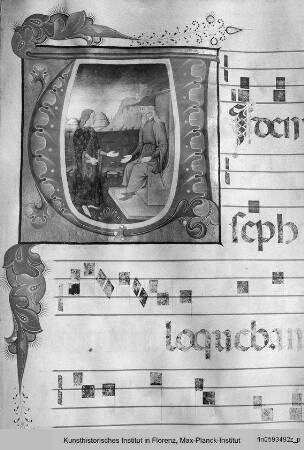 seph
loqueban
Kunsthistorisches Institut in Florenz, Max-Planck-Institut
fln0593492z_p